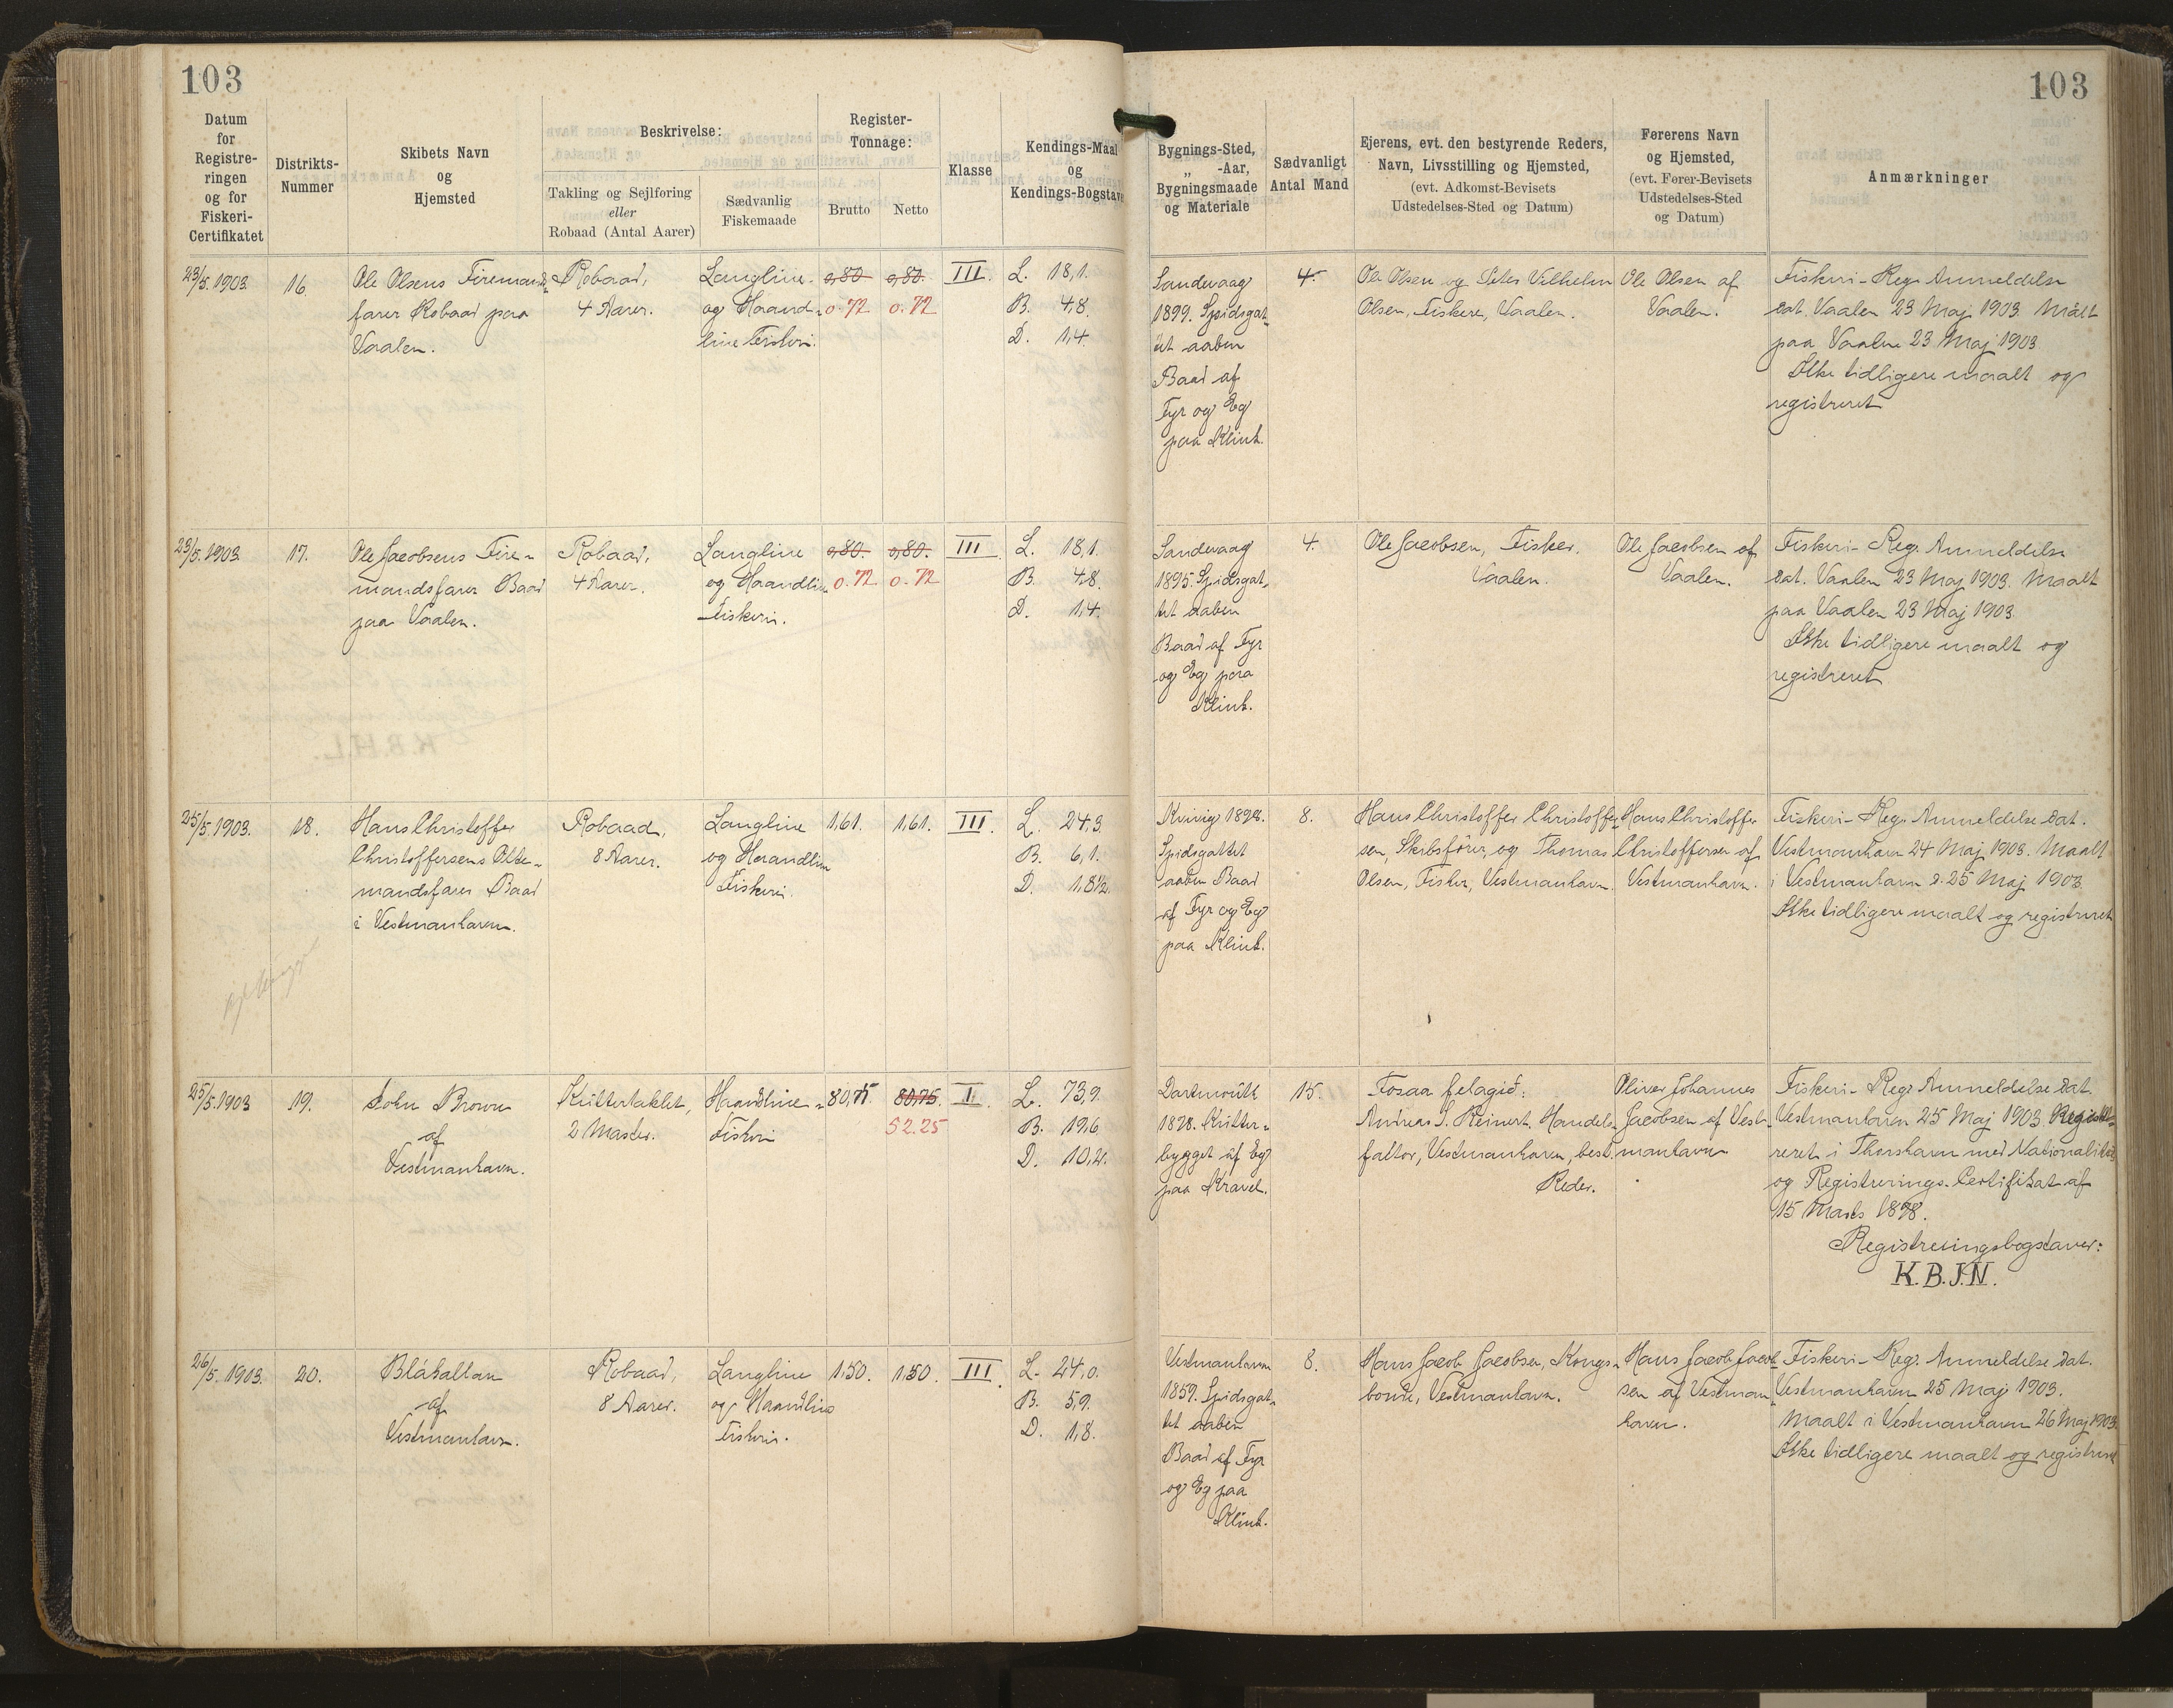 103
103
Datum
for
Registre-
ringen
og for
Fiskeri-
Certifikatet
Distrikts-
Nummer
Skibets Navn
og
Hjemsted
Beskrivelse:
Takling og Sejlføring
eller
Robaad (Antal Aarer)
Sædvanlig
Fiskemaade
Register-
Tonnage:
Brutto
Netto
Klasse
Kendings-Maal
og
Kendings-Bogstaver
Bygnings-Sted,
„ -Aar,
Bygningsmaade
og Materiale
Sædvanligt
Antal Mand
Ejerens, evt. den bestyrende Reders,
Navn, Livsstilling og Hjemsted,
(evt. Adkomst-Bevisets
Udstedelses-Sted og Datum)
Førerens Navn
og Hjemsted,
(evt. Fører-Bevisets
Udstedelses-Sted
og Datum)
Anmærkninger
23/5. 1903.
16.
Ole Olsens Firemands-
farer Robaad paa
Vaalen.
Robaad,
4 Aarer.
Langline-
og Haand-
line Fiskeri.
0,80
0.72
0,80.
0.72
III.
L. 18,1.
B. 4,8.
D. 1,4
Sandevaag
1899. Spidsgat-
tet aaben
Baad af
Fyr og Eg
paa Klink.
4.
Ole Olsen og Peter Vilhelm
Olsen, Fiskere, Vaalen.
Ole Olsen af
Vaalen.
Fiskeri-Reg. Anmeldelse
dat. Vaalen 23 Maj 1903. Målt
paa Vaalen 23 Maj 1903.
Ikke tidligere maalt og
registreret
23/5. 1903.
17.
Ole Jacobsens Fire-
mandsfarer Baad
paa Vaalen.
Robaad,
4 Aarer.
Langline
og Haandline
Fiskeri.
0,80.
0.72
0,80.
0.72
III.
L. 18,1.
B. 4,8.
D. 1,4.
Sandevaag
1895. Spidsgat-
tet aaben
Baad af Fyr
og Eg paa
Klink.
4.
Ole Jacobsen, Fisker,
Vaalen.
Ole Jacobsen af
Vaalen.
Fiskeri-Reg. Anmeldelse
dat. Vaalen 23 Maj 1903. Maalt
paa Vaalen 23 Maj 1903.
Ikke tidligere maalt og
registreret
25/5. 1903.
18.
Hans Christoffer
Christoffersens Otte-
mandsfarer Baad
i Vestmanhavn.
Robaad,
8 Aarer.
Langline
og Haandline
Fiskeri.
1,61.
1,61.
III.
L. 24,3.
B. 6,1.
D. 1,8½.
Kvivig
Spidsgattet
aaben Baad
af Fyr og Eg
paa Klink.
8.
Hans Christoffer Christoffer-
sen, Skibsfører, og Thomas
Olsen, Fisker, Vestmanhavn.
Hans Christoffer
Christoffersen af
Vestmanhavn.
Fiskeri-Reg. Anmeldelse dat.
Vestmanhavn 24 Maj 1903. Maalt
i Vestmanhavn d. 25 Maj 1903.
Ikke tidligere maalt og registreret
25/5. 1903
19.
John Brown
af
Vestmanhavn.
Kuttertaklet,
2 Master.
Haandline-
Fiskeri
80,75.
80,75.
52.25
I.
L. 73,9.
B. 19,6
D. 10,2.
Dartmouth
1878. Kutter-
bygget af Eg
paa Kravel.
15.
Fosaa felagið:
Andreas S. Reinert, Handels-
faktor, Vestmanhavn, best.
Reder.
Oliver Johannes
Jacobsen af Vest-
manhavn
Fiskeri-Reg. Anmeldelse dat.
Vestmanhavn 25 Maj 1903. Regist-
reret i Thorshavn med Nationalitets
og Registrerings-Certifikat af
15 Marts 1898.
Registreringsbogstaver:
K.B.J.N.
26/5. 1903.
20.
Bláhallan
af
Vestmanhavn.
Robaad,
8 Aarer.
Langline
og Haandline
Fiskeri.
1,50.
1,50.
III.
L. 24,0.
B. 5,9.
D. 1,8.
Vestmanhavn
1859. Spidsgat-
tet aaben
Baad af Fyr
og Eg paa
Klink.
8.
Hans Jacob Jacobsen, Kongs-
bonde, Vestmanhavn.
Hans Jacob Jacob-
sen af Vestman-
havn.
Fiskeri-Reg. Anmeldelse dat.
Vestmanhavn 25 Maj 1903.
Maalt i Vestmanhavn 26 Maj 1903.
Ikke tidligere maalt og registreret